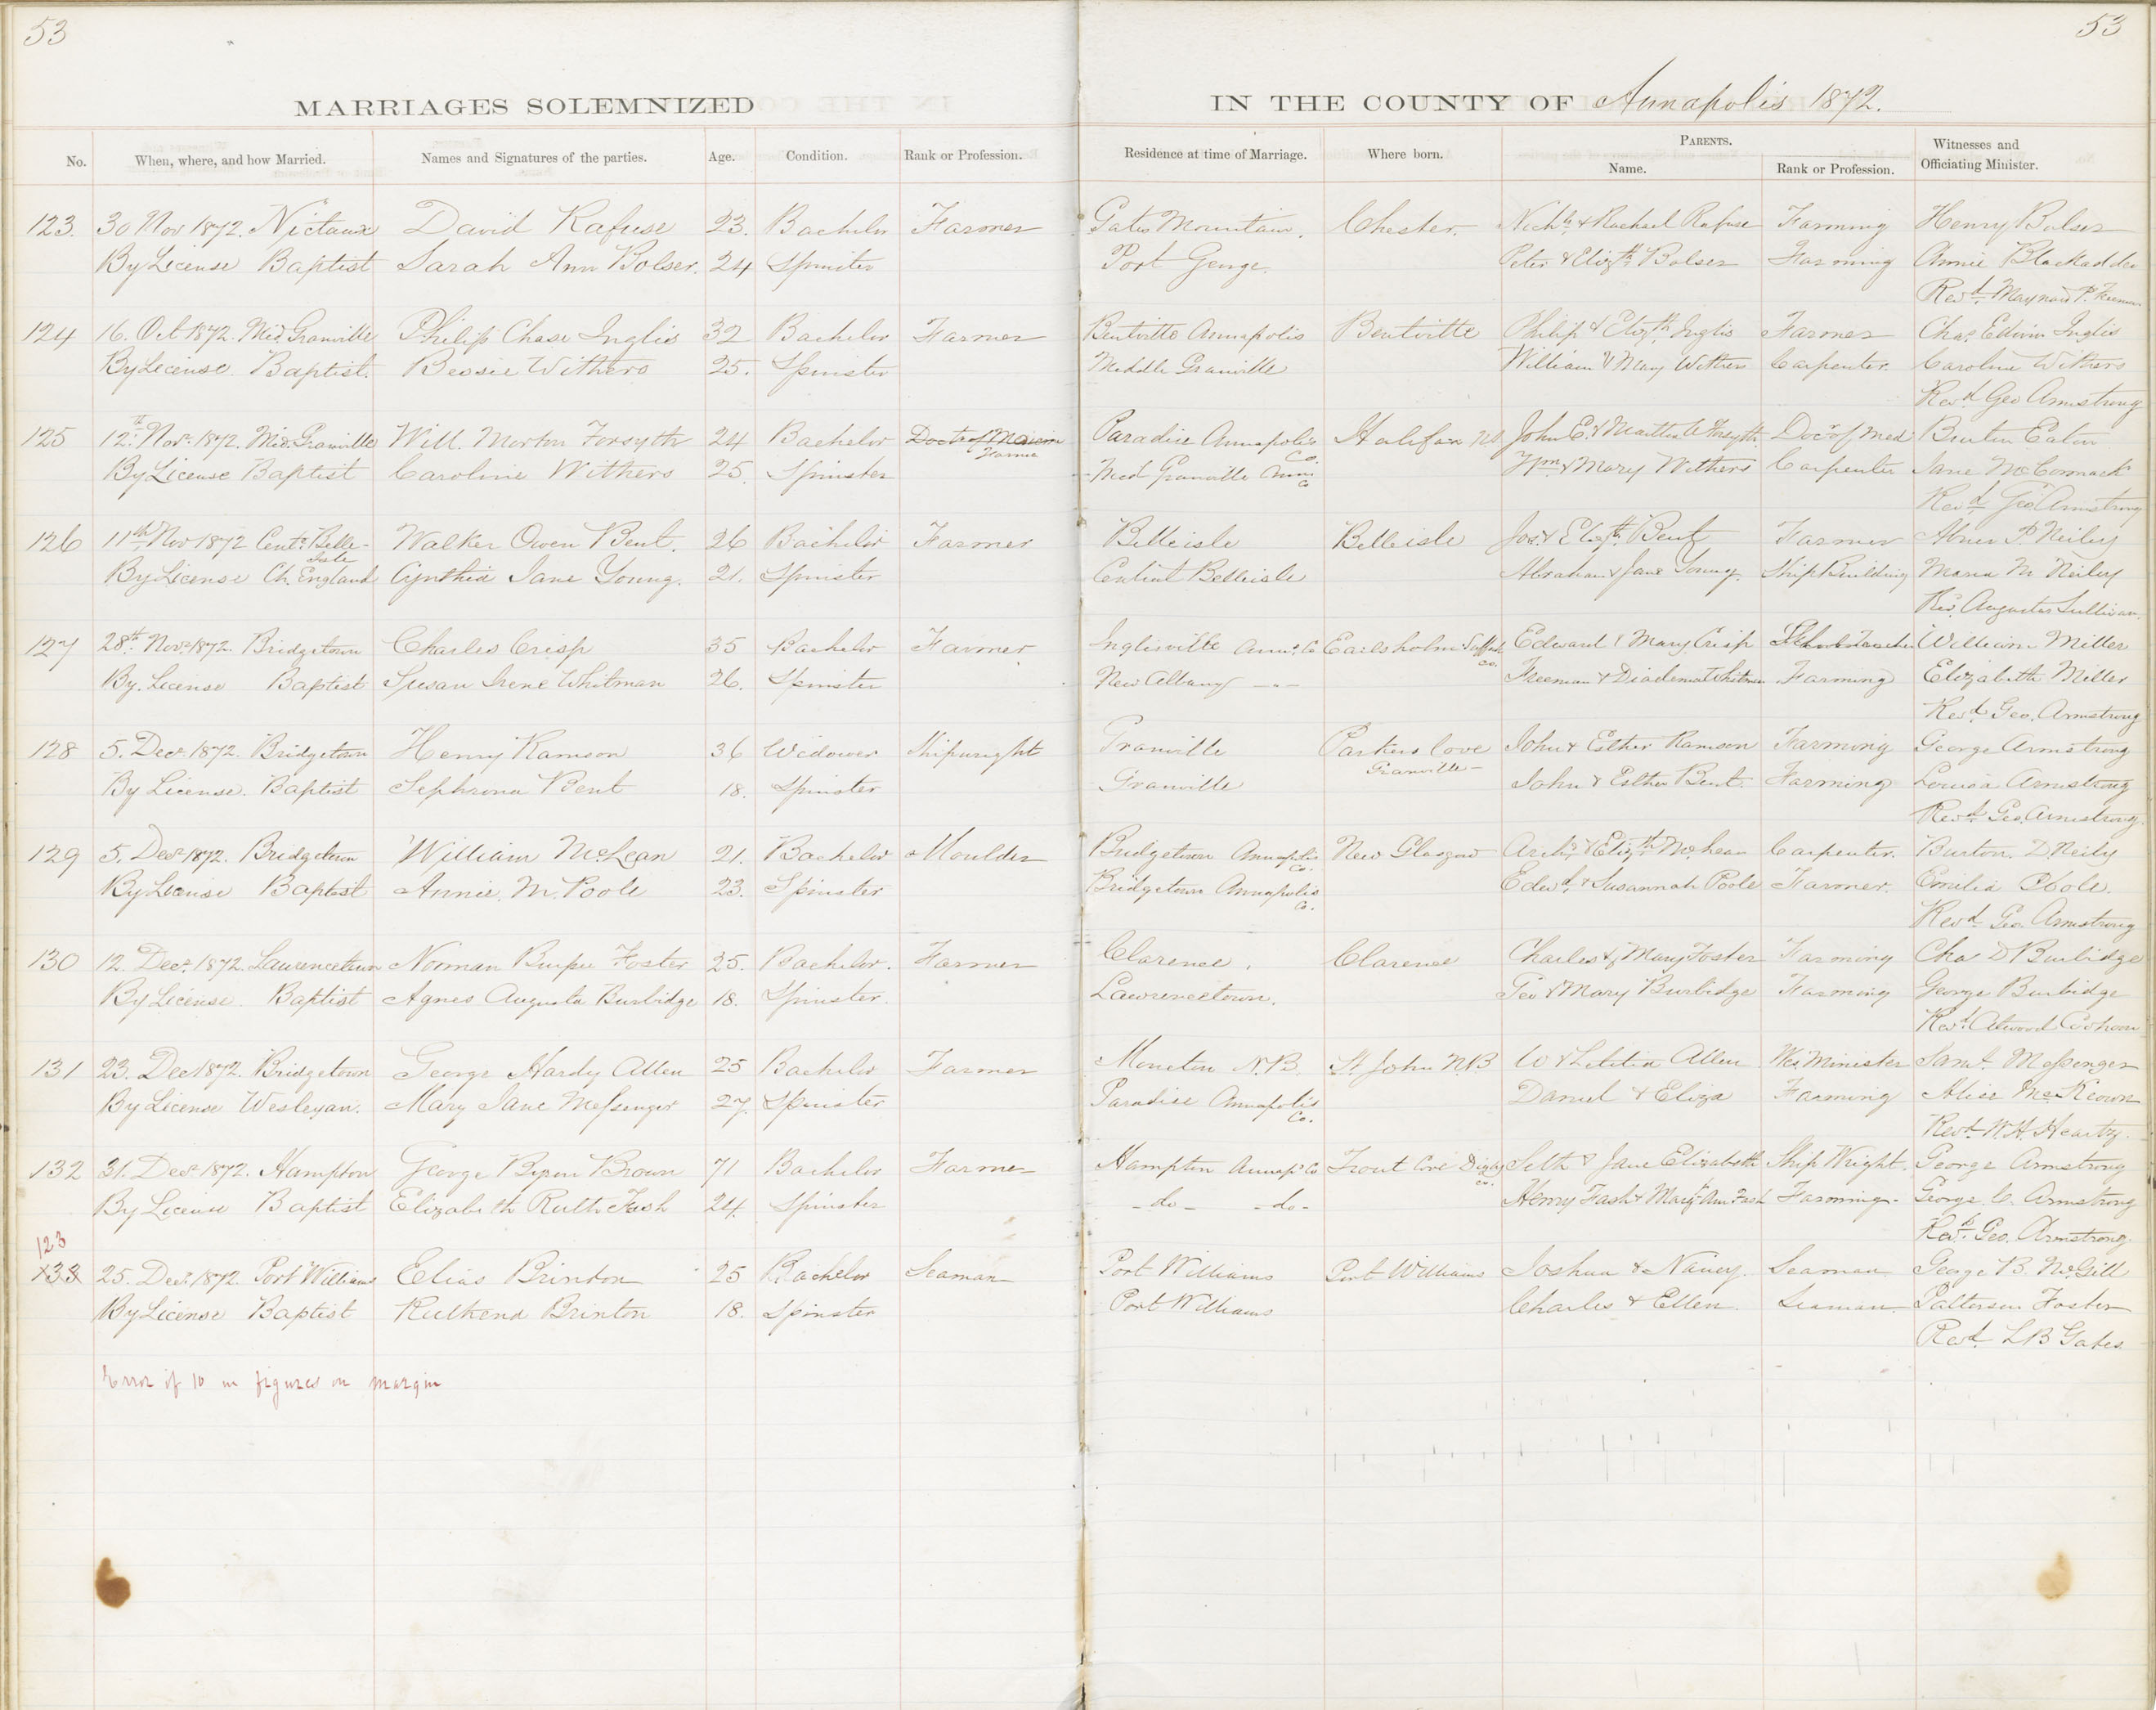 53
53
MARRIAGES SOLEMNIZED IN THE COUNTY OF Annapolis 1872.
No. When, where, and how Married. Names and Signatures of the parties. Age. Condition. Rank or Profession. Residence at time of Marriage. Where born. PARENTS. Name. Rank or Profession. Witnesses and Officiating Minister.
123. 30 Nov 1872. Nictaux David Rafuse 23. Bachelor Farmer Gates Mountain. Chester. Nichs & Rachael Rafuse Farming Henry Bolser
By License Baptist Sarah Ann Bolser. 24 Spinster Port George. Peter & Elizth Bolser Farming Annie Blackadder
Revd Maynard P. Freeman
124 16. Oct 1872. Mid. Granville Philip Chase Inglis 32 Bachelor Farmer Bentville Annapolis Bentville Philip & Elizth Inglis Farmer Chas Edwin Inglis
By License. Baptist. Bessie Withers 25. Spinster Middle Granville William & Mary Withers Carpenter. Caroline Withers
Revd Geo Armstrong
125 12th Novr 1872. Mid. Granville Will. Morton Forsyth 24 Bachelor Farmer Paradise Annapolis Co. Halifax NS John E. & Martha A Forsyth Docr of Med Burton Eaton
By License Baptist Caroline Withers 25. Spinster Mid Granville Anns Co Wm & Mary Withers Carpenter Jane McCormack
Revd Geo Armstrong
126 11th Nov 1872 Centl Belle-Isle Walker Owen Bent. 26 Bachelor Farmer Belleisle Belleisle Jos. & Elizth Bent Farmer Abner P. Neily
By License Ch. England Cynthia Jane Young. 21. Spinster Central Belleisle Abraham & Jane Young. Ship Building Maria M Neily
Rev. Augustus Sullivan
127 28th Novr 1872. Bridgetown Charles Crisp 35 Bachelor Farmer Inglisville Anns Co Earlsholm Suffolk Co. Edward & Mary Crisp School Teacher William Miller
By. License Baptist Susan Irene Whitman 26. Spinster New Albany — " — Freeman & Diadema Whitman Farming Elizabeth Miller
Revd Geo. Armstrong
128 5. Decr 1872. Bridgetown Henry Ramson 36 Widower Shipwright Granville Parkers Cove Granville – John & Esther Ramson Farming George Armstrong
By License. Baptist Sephrona Bent 18. Spinster Granville John & Esther Bent. Farming Louisa Armstrong
Revd Geo. Armstrong.
129 5. Decr 1872. Bridgetown William McLean 21. Bachelor Moulder Bridgetown Annapolis Co. New Glasgow Archd & Elizth McLean Carpenter. Burton. D Neily
By License Baptist Annie. M. Poole 23. Spinster Bridgetown Annapolis Co. Edwd & Susannah Poole Farmer. Emilia Poole.
Revd Geo Armstrong
130 12. Decr 1872. Lawrencetown Norman Burpee Foster 25. Bachelor. Farmer Clarence. Clarence Charles & Mary Foster Farming Chas D Burbidge
By License. Baptist Agnes Augusta Burbidge 18. Spinster. Lawrencetown. Geo & Mary Burbidge Farming George Burbidge
Revd Atwood Cohoon
131 23. Dec 1872. Bridgetown George Hardy Allen 25 Bachelor Farmer Moncton N.B. St John N.B W & Letitia Allen Wes. Minister Saml Messenger
By License Wesleyan. Mary Jane Messenger 27. Spinster Paradise Annapolis Co. Daniel & Eliza Farming Alice McKeown
Revd W.H. Heartz.
132 31. Decr 1872. Hampton George Byron Brown 71 Bachelor Farmer Hampton Annaps Co. Trout Cove Digby co. Seth & Jane Elizabeth Ship Wright. George Armstrong
By License Baptist Elizabeth Ruth Fash 24. Spinster – do – – do – Henry Fash & Mary Ann Fash Farming – George C. Armstrong
Revd Geo. Armstrong.
123
133 25. Decr 1872. Port Williams Elias Brinton 25 Bachelor Seaman Port Williams Port Williams Joshua & Nancy. Seaman George B. McGill
By License Baptist Ruthena Brinton 18. Spinster Port Williams Charles & Ellen. Seaman. Patterson Foster
Revd L B Gates
Error of 10 in figures on margin